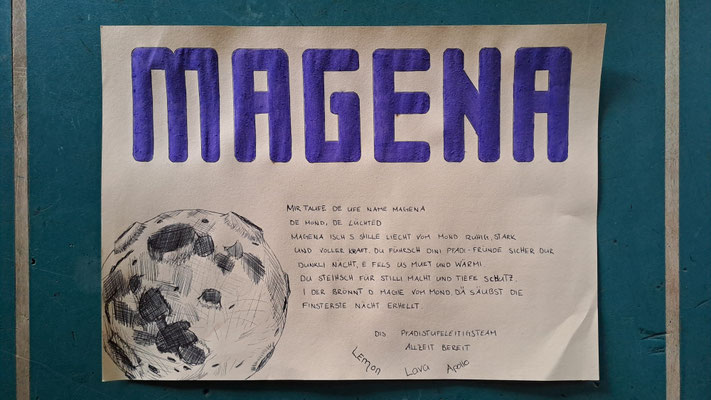 MAGENA
MIR TAUFE DE UFE NAME MAGENA
DE MOND, DE LÜCHTED
MAGENA ISCH S STILLE LIECHT VOM MOND RUHIG, STARK
UND VOLLER KRAFT. DU FÜHRSCH DINI PFADI-FRÜNDE SICHER DUR
DUNKLI NACHT, E FELS US MUET UND WÄRMI
DU STEIHSCH FÜR STILLI MACHT UND TIEFE SCHUTZ,
I DER BRÖNNT D MAGIE VOM MOND, DÄ SÄUBST DIE
FINSTERSTE NÄCHT ERHELLT.
DIS PFADISTUFELEITIGSTEAM
ALLZEIT BEREIT
Lemon Lava Apollo